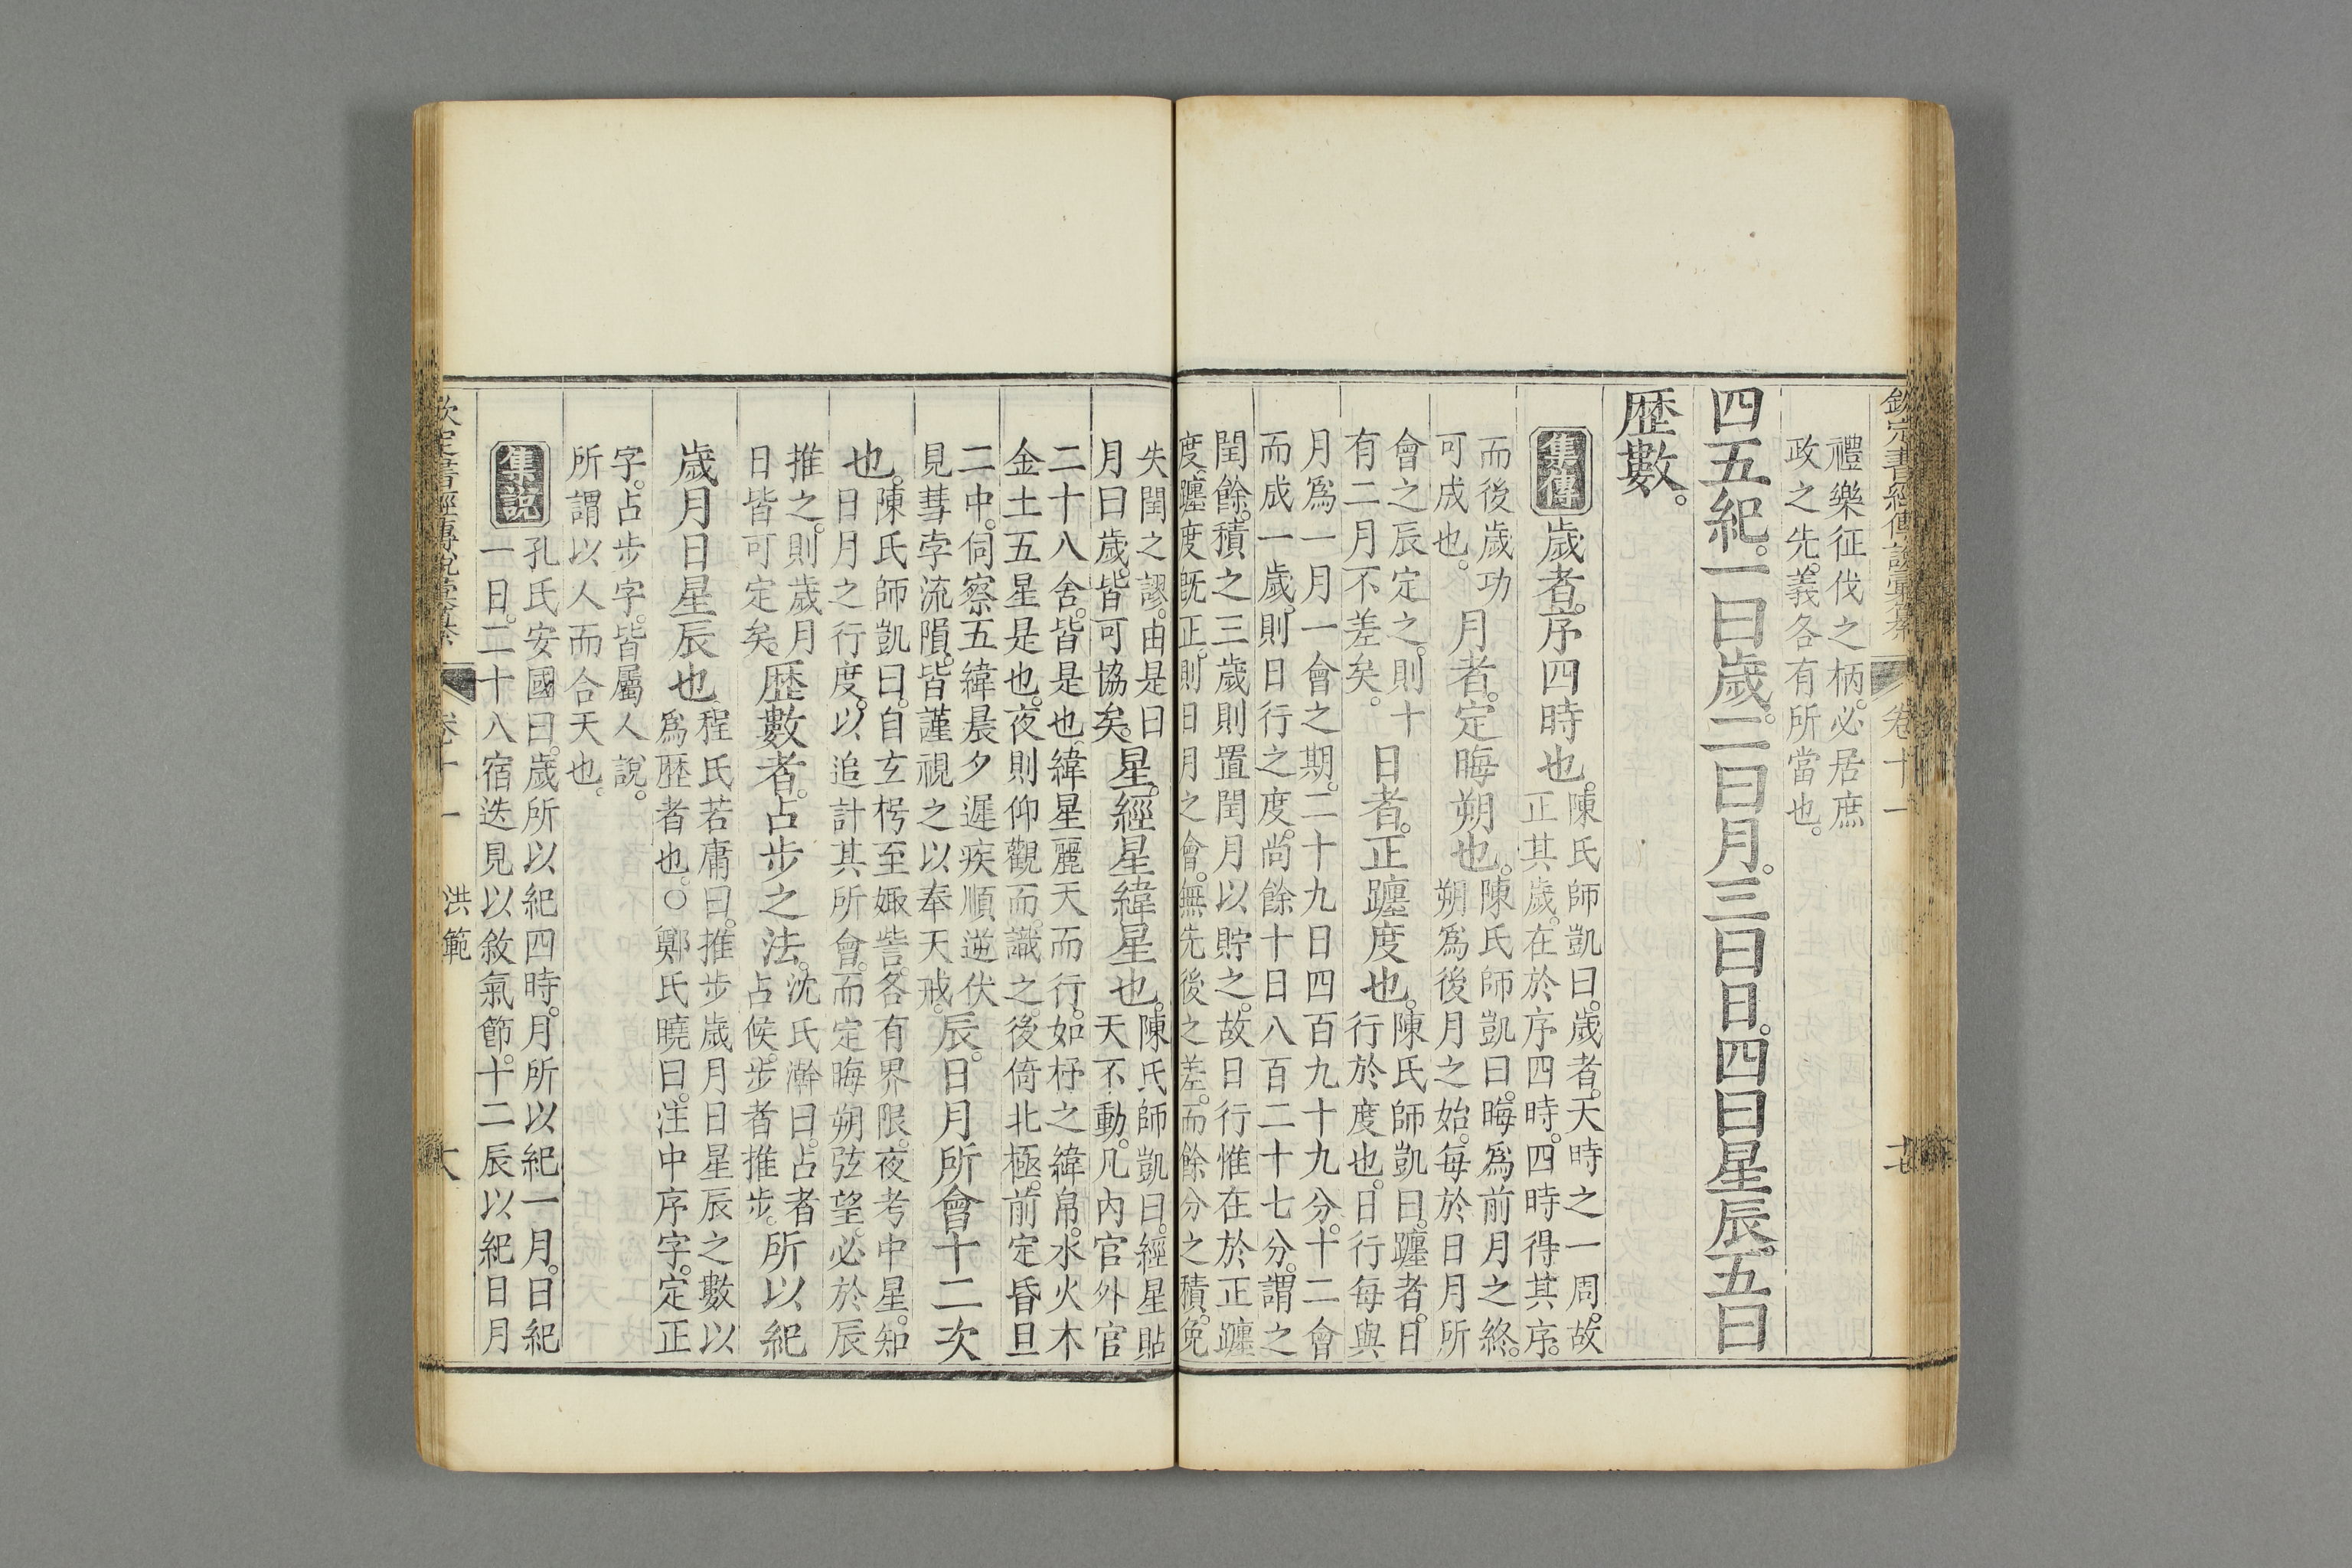 欽定書經傳說彙纂 卷十一 十七
禮樂征伐之柄。必居庶
政之先。義各有所當也。
四五紀。一曰歲。二曰月。三曰日。四曰星辰。五曰
歷數。
集傳
歲者。序四時也。
陳氏師凱曰。歲者。天時之一周。故
正其歲。在於序四時。四時得其序。
而後歲功
可成也。
月者。定晦朔也。
陳氏師凱曰。晦爲前月之終。
朔爲後月之始。每於日月所
會之辰定之。則十
有二月不差矣。
日者。正躔度也。
陳氏師凱曰。躔者。日
行於度也。日行每與
月爲一月一會之期。二十九日四百九十九分。十二會
而成一歲。則日行之度。尚餘十日八百二十七分。謂之
閏餘。積之三歲則置閏月以貯之。故日行惟在於正躔
度。躔度旣正。則日月之會。無先後之差。而餘分之積。免
失閏之謬。由是日
月曰歲。皆可協矣。
星。經星緯星也。
陳氏師凱曰。經星貼
天不動。凡內官外官
二十八舍。皆是也。緯星麗天而行。如杼之緯帛。水火木
金土五星是也。夜則仰觀而識之。後倚北極。前定昏旦
二中。伺察五緯晨夕遲疾順逆伏
見彗孛流隕。皆謹視之以奉天戒。
辰。日月所會十二次
也。
陳氏師凱曰。自玄枵至娵訾。各有界限。夜考中星。知
日月之行度。以追計其所會。而定晦朔弦望。必於辰
推之。則歲月
日皆可定矣。
歷數者。占步之法。
沈氏澣曰。占者
占候。步者推步。
所以紀
歲月日星辰也。
程氏若庸曰。推步歲月日星辰之數以
爲歷者也。○鄭氏曉曰。注中序字。定正
字。占步字。皆屬人說。
所謂以人而合天也。
集說
孔氏安國曰。歲所以紀四時。月所以紀一月。日紀
一日。二十八宿迭見以敘氣節。十二辰以紀日月
欽定書經傳說彙纂 卷十一 洪範